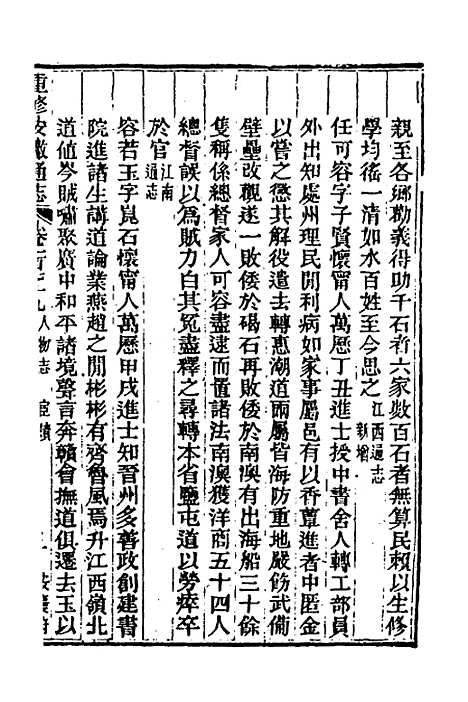 親至各鄉勸義得助千石者六家數百石者無算民賴以生修
學均徭一清如水百姓至今思之江西通志新增
任可容字子賢懷甯人萬歷丁丑進士授中書舍人轉工部員
外出知處州理民閒利病如家事屬邑有以香蕈進者中匿金
以嘗之懲其解役遣去轉惠潮道兩屬皆海防重地嚴飭武備
壁壘改觀遂一敗倭於碣石再敗倭於南澳有出海船三十餘
隻稱係總督家人可容盡逮而置諸法南澳獲洋商五十四人
總督誤以為賊力白其冤盡釋之尋轉本省鹽屯道以勞瘁卒
於官江南通志
容若玉字崑石懷甯人萬歷甲戌進士知晉州多善政創建書
院進諸生講道論業燕趙之閒彬彬有齊魯風焉升江西嶺北
道值岑賊嘯聚廣中和平諸境聲言奔贛會撫道俱遷去玉以
重修安徽通志 卷一百七十九 人物志 宦績